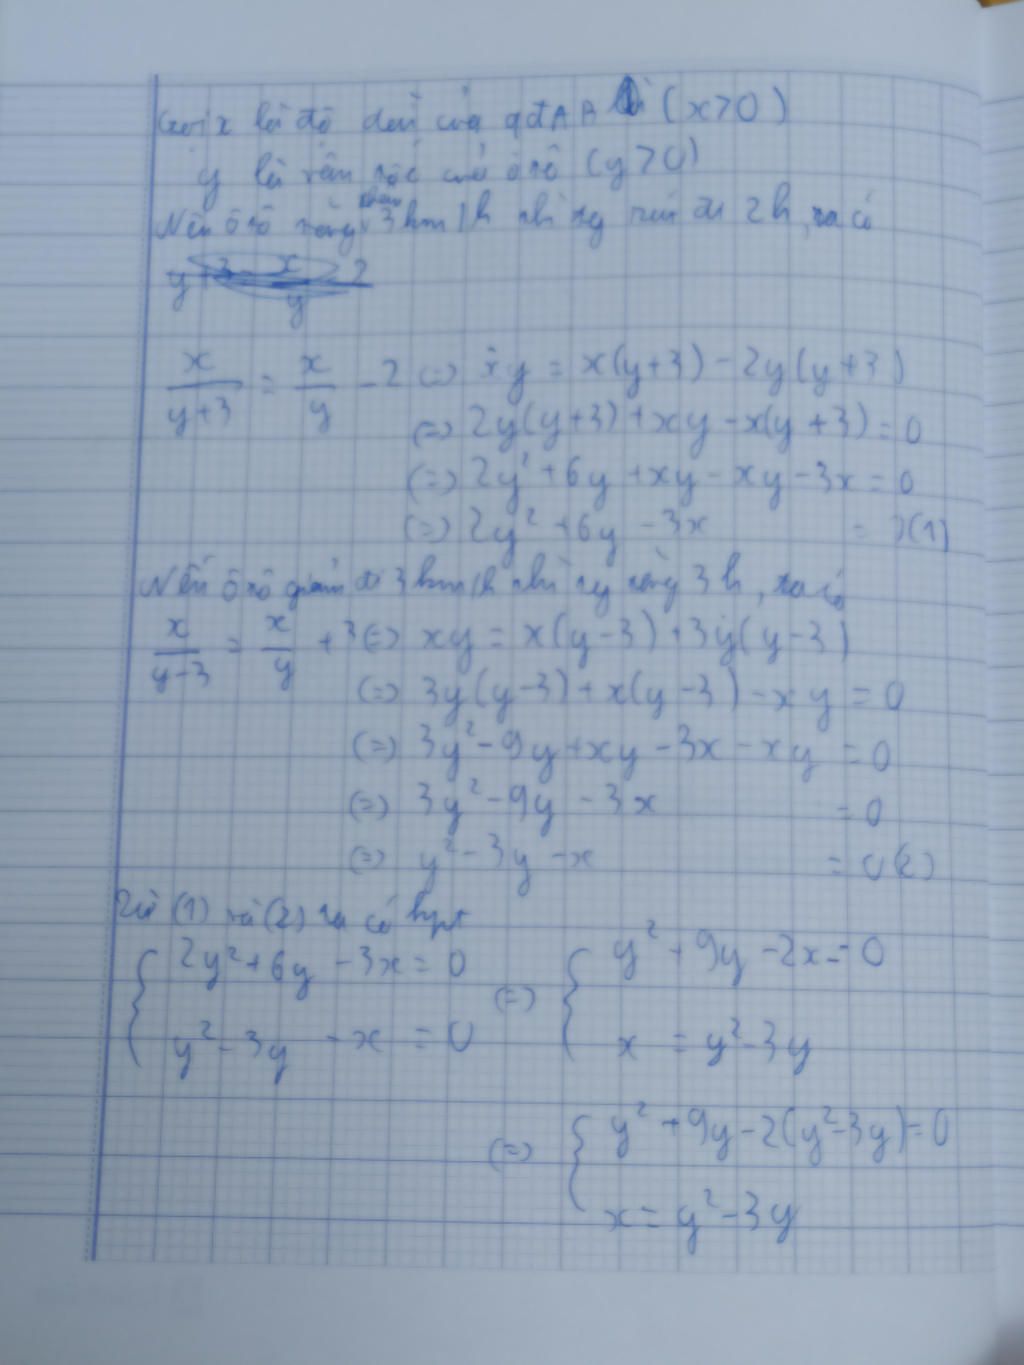 Gọi x là độ dài của qđ AB (x>0)
y là vận tốc của ô tô (y>0)
Nếu ô tô tăng thêm 3km/h thì tg rút đi 2h, ta có
x/(y+3) = x/y - 2 <=> xy = x(y+3) - 2y(y+3)
<=> 2y(y+3) + xy - x(y+3) = 0
<=> 2y² + 6y + xy - xy - 3x = 0
<=> 2y² + 6y - 3x = 0(1)
Nếu ô tô giảm đi 3km/h thì tg tăng 3h, ta có
x/(y-3) = x/y + 3 <=> xy = x(y-3) + 3y(y-3)
<=> 3y(y-3) + x(y-3) - xy = 0
<=> 3y² - 9y + xy - 3x - xy = 0
<=> 3y² - 9y - 3x = 0
<=> y² - 3y - x = 0(2)
Từ (1) và (2) ta có hpt
{ 2y² + 6y - 3x = 0 <=> { y² + 9y - 2x = 0
y² - 3y - x = 0 x = y² - 3y
<=> { y² + 9y - 2(y² - 3y) = 0
x = y² - 3y